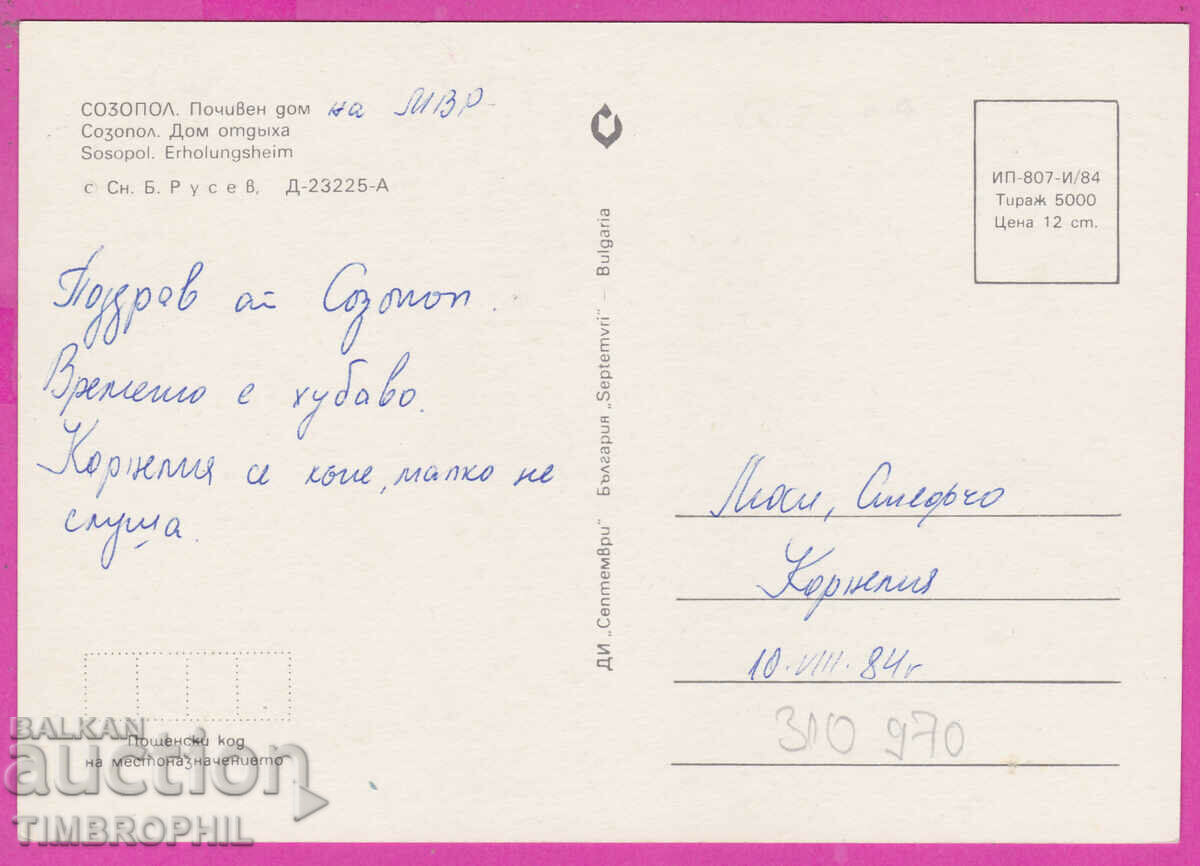 СОЗОПОЛ. Почивен дом на МВР
Созопол. Дом отдыха
Sosopol. Erholungsheim
с Сн. Б. Русев, Д-23225-А
Поздрав от Созопол.
Времето е хубаво.
Корнелия се къпе, малко не
слуша.
ДИ „Септември" България „Septemvri" – Bulgaria
ИП-807-И/84
Тираж 5000
Цена 12 ст.
Люси, Стефчо
Корнелия
10.VIII.84 г
310 970
Пощенски код
на местоназначението
BALKAN
auction
TIMBROPHIL